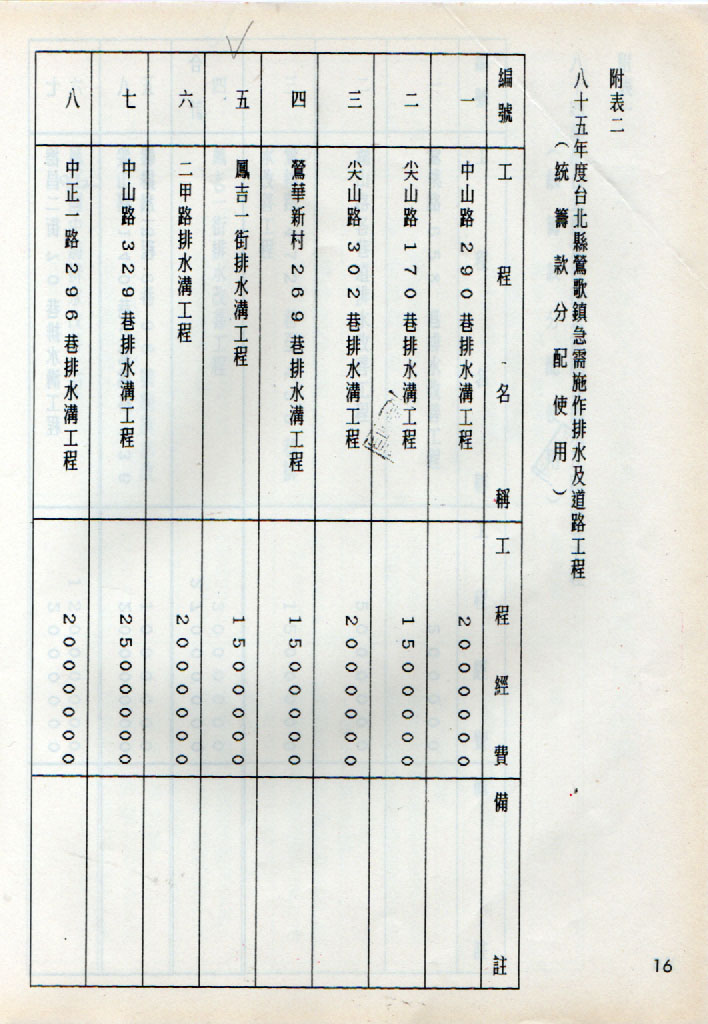 附表二
八十五年度台北縣鶯歌鎮急需施作排水及道路工程
（統籌款分配使用）
編號 工程名稱 工程經費 備註
一 中山路290巷排水溝工程 2000000
二 尖山路170巷排水溝工程 1500000
三 尖山路302巷排水溝工程 2000000
四 鶯華新村269巷排水溝工程 1500000
五 鳳吉一街排水溝工程 1500000
六 二甲路排水溝工程 2000000
七 中山路329巷排水溝工程 2500000
八 中正一路296巷排水溝工程 2000000
16